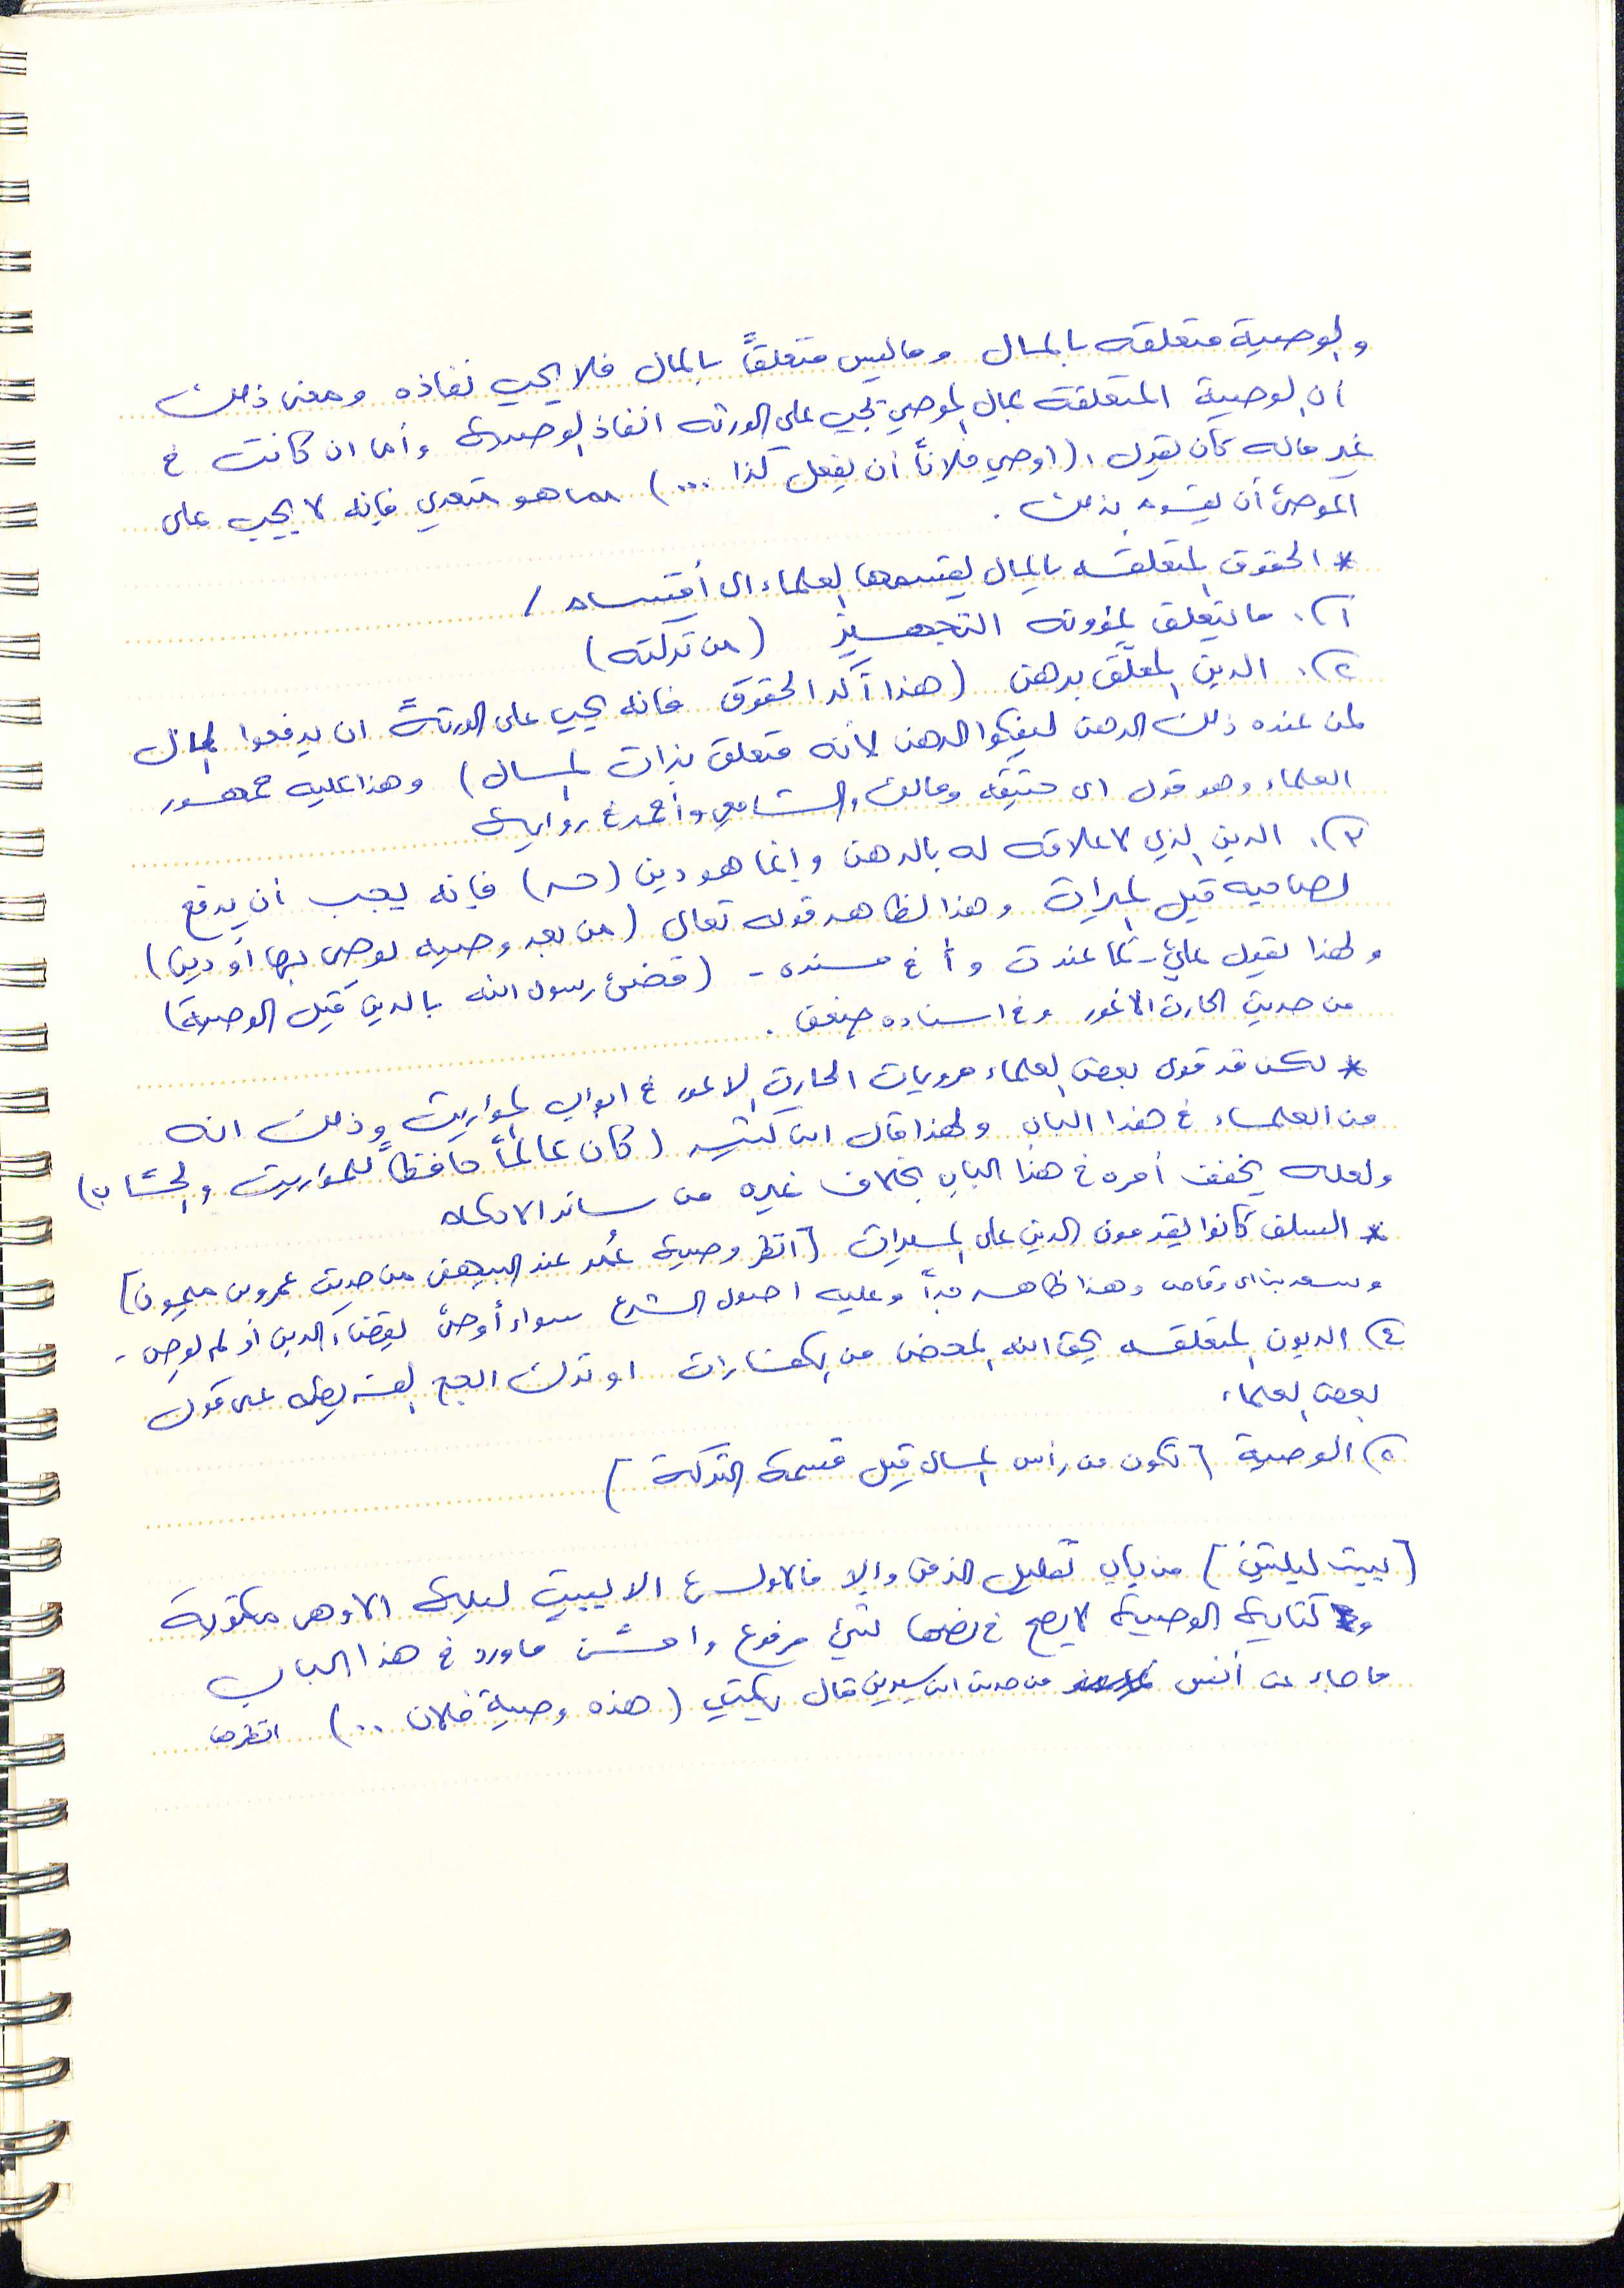 والوصية متعلقه بالمال وماليس متعلقاً بالمال فلا يجب نفاذه ومعنى ذلك
أن الوصية المتعلقة بمال الموصي يجب على الورثه انفاذ الوصية وأما ان كانت في
غير ماله كأن يقول: (أوصي فلاناً أن يفعل كذا ...) مما هو متعدي فإنه لا يجب على
الموصى أن يقوم بذلك .
* الحقوق المتعلقه بالمال يقسمها العلماء الى أقسام /
١). ما يتعلق بمؤونه التجهيز (من تركته)
٢). الدين المعلّق برهن (هذا آكد الحقوق فانه يجب على الورثةً ان يدفعوا المال
لمن عنده ذلك الرهن ليفكوا الرهن لأنه متعلق بذات المال) وهذا عليه جمهور
العلماء وهو قول ابي حنيفه ومالك والشافعي وأحمد في رواية
٣). الدين الذي لا علاقه له بالرهن وإنما هو دين (حر) فإنه يجب أن يدفع
لصاحبه قبل الميراث وهذا لظاهر قوله تعالى (من بعد وصيه يوصى بها أو دين)
ولهذا يقول علي - كما عند ت وأ في مسنده - (قضى رسول الله بالدين قبل الوصية)
من حديث الحارث الأعور وفي اسناده ضعف .
* لكن قد قوى بعض العلماء مرويات الحارث الاعور في ابواب المواريث وذلك انه
من العلماء في هذا الباب ولهذا قال ابن كثير (كان عالماً حافظاً للمواريث والحساب)
ولعله يخفف أمره في هذا الباب بخلاف غيره من سائر الاحكام
* السلف كانوا يقدمون الدين على الميراث [انظر وصية عُمر عند البيهقي من حديث عمرو بن ميمون]
وسعد بن ابي وقاص وهذا ظاهر جداً وعليه اصول الشرع سواء أوصى بقضاء الدين أو لم يوصِ -
٤) الديون المتعلقه بحق الله المحض من الكفارات او ترك الحج الفريضه على قول
بعض العلماء
٥) الوصية [تكون من رأس المال قبل قسمة التركة]
[يبيت ليلتين] من باب تقليل الزمن وإلا فالاولى الا يبيت ليلة الا وهي مكتوبة
و كتابة الوصية لا يصح في نصها شيء مرفوع وامثل ماورد في هذا الباب
ما جاء عن أنس من حديث ابن سيرين قال يكتب (هذه وصية فلان ..) انظرها